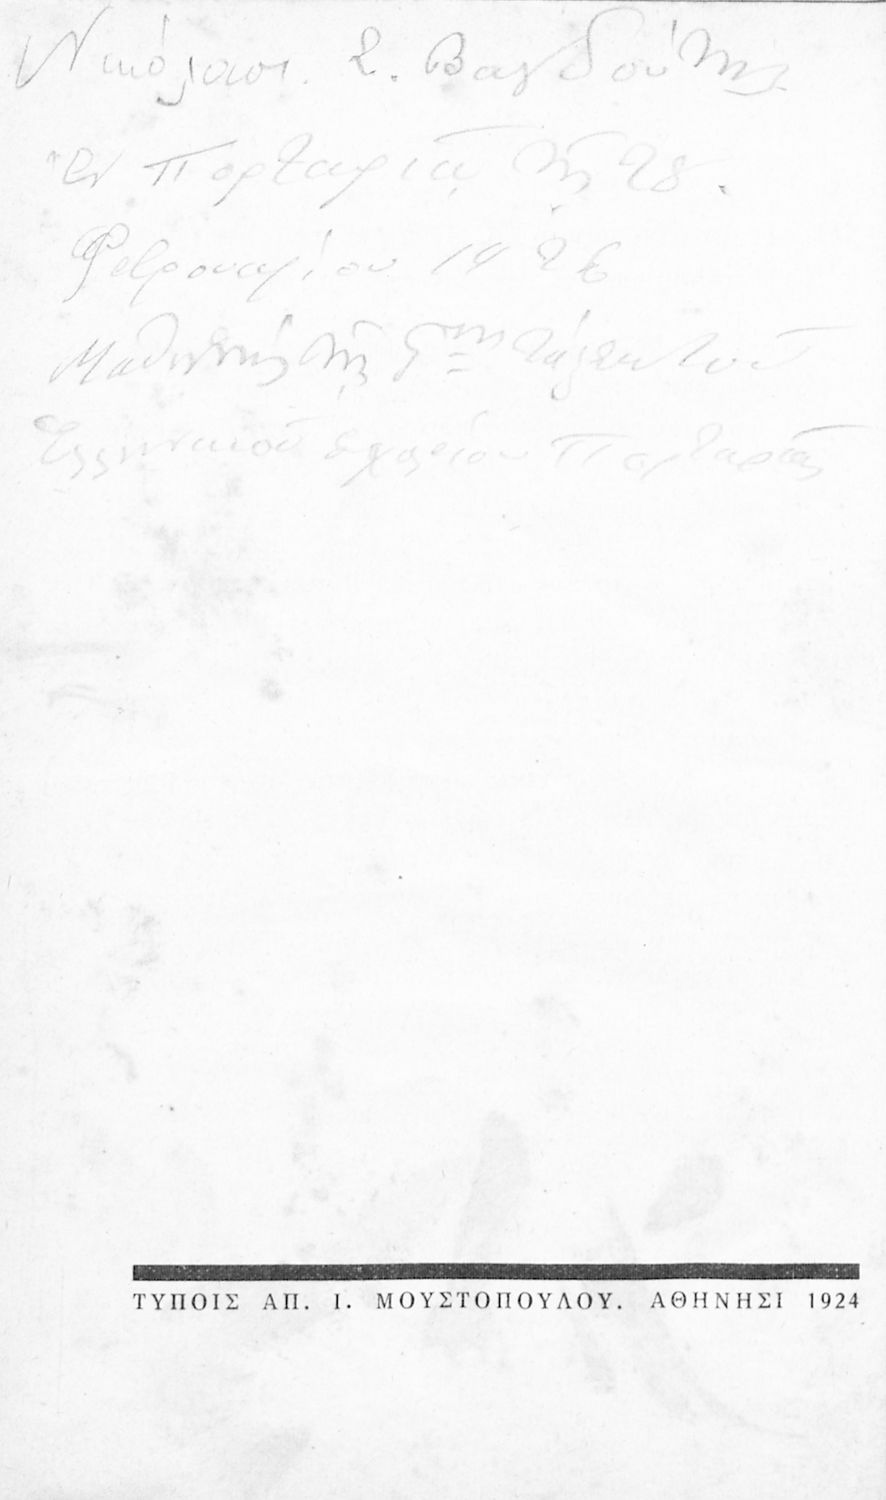 Νικόλαος. Σ. Βαγδούτης
Ἐν Πορταριᾷ τῇ 28.
Φεβρουαρίου 1926
Μαθητὴς τῆς τάξεως τοῦ
Ἑλληνικοῦ Σχολείου Πορταριᾶς
ΤΥΠΟΙΣ ΑΠ. Ι. ΜΟΥΣΤΟΠΟΥΛΟΥ. ΑΘΗΝΗΣΙ 1924